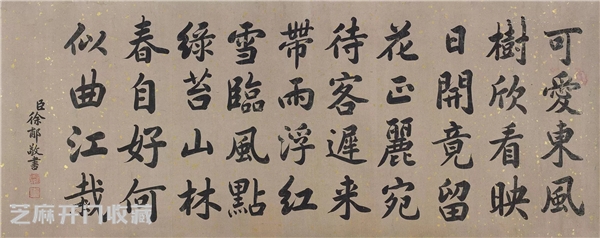 可愛東風
樹欣看映
日開竟留
花正麗宛
待客遲来
帶雨浮紅
雪臨風點
綠苔山林
春自好何
似曲江栽
臣徐郙敬書
芝麻开门收藏